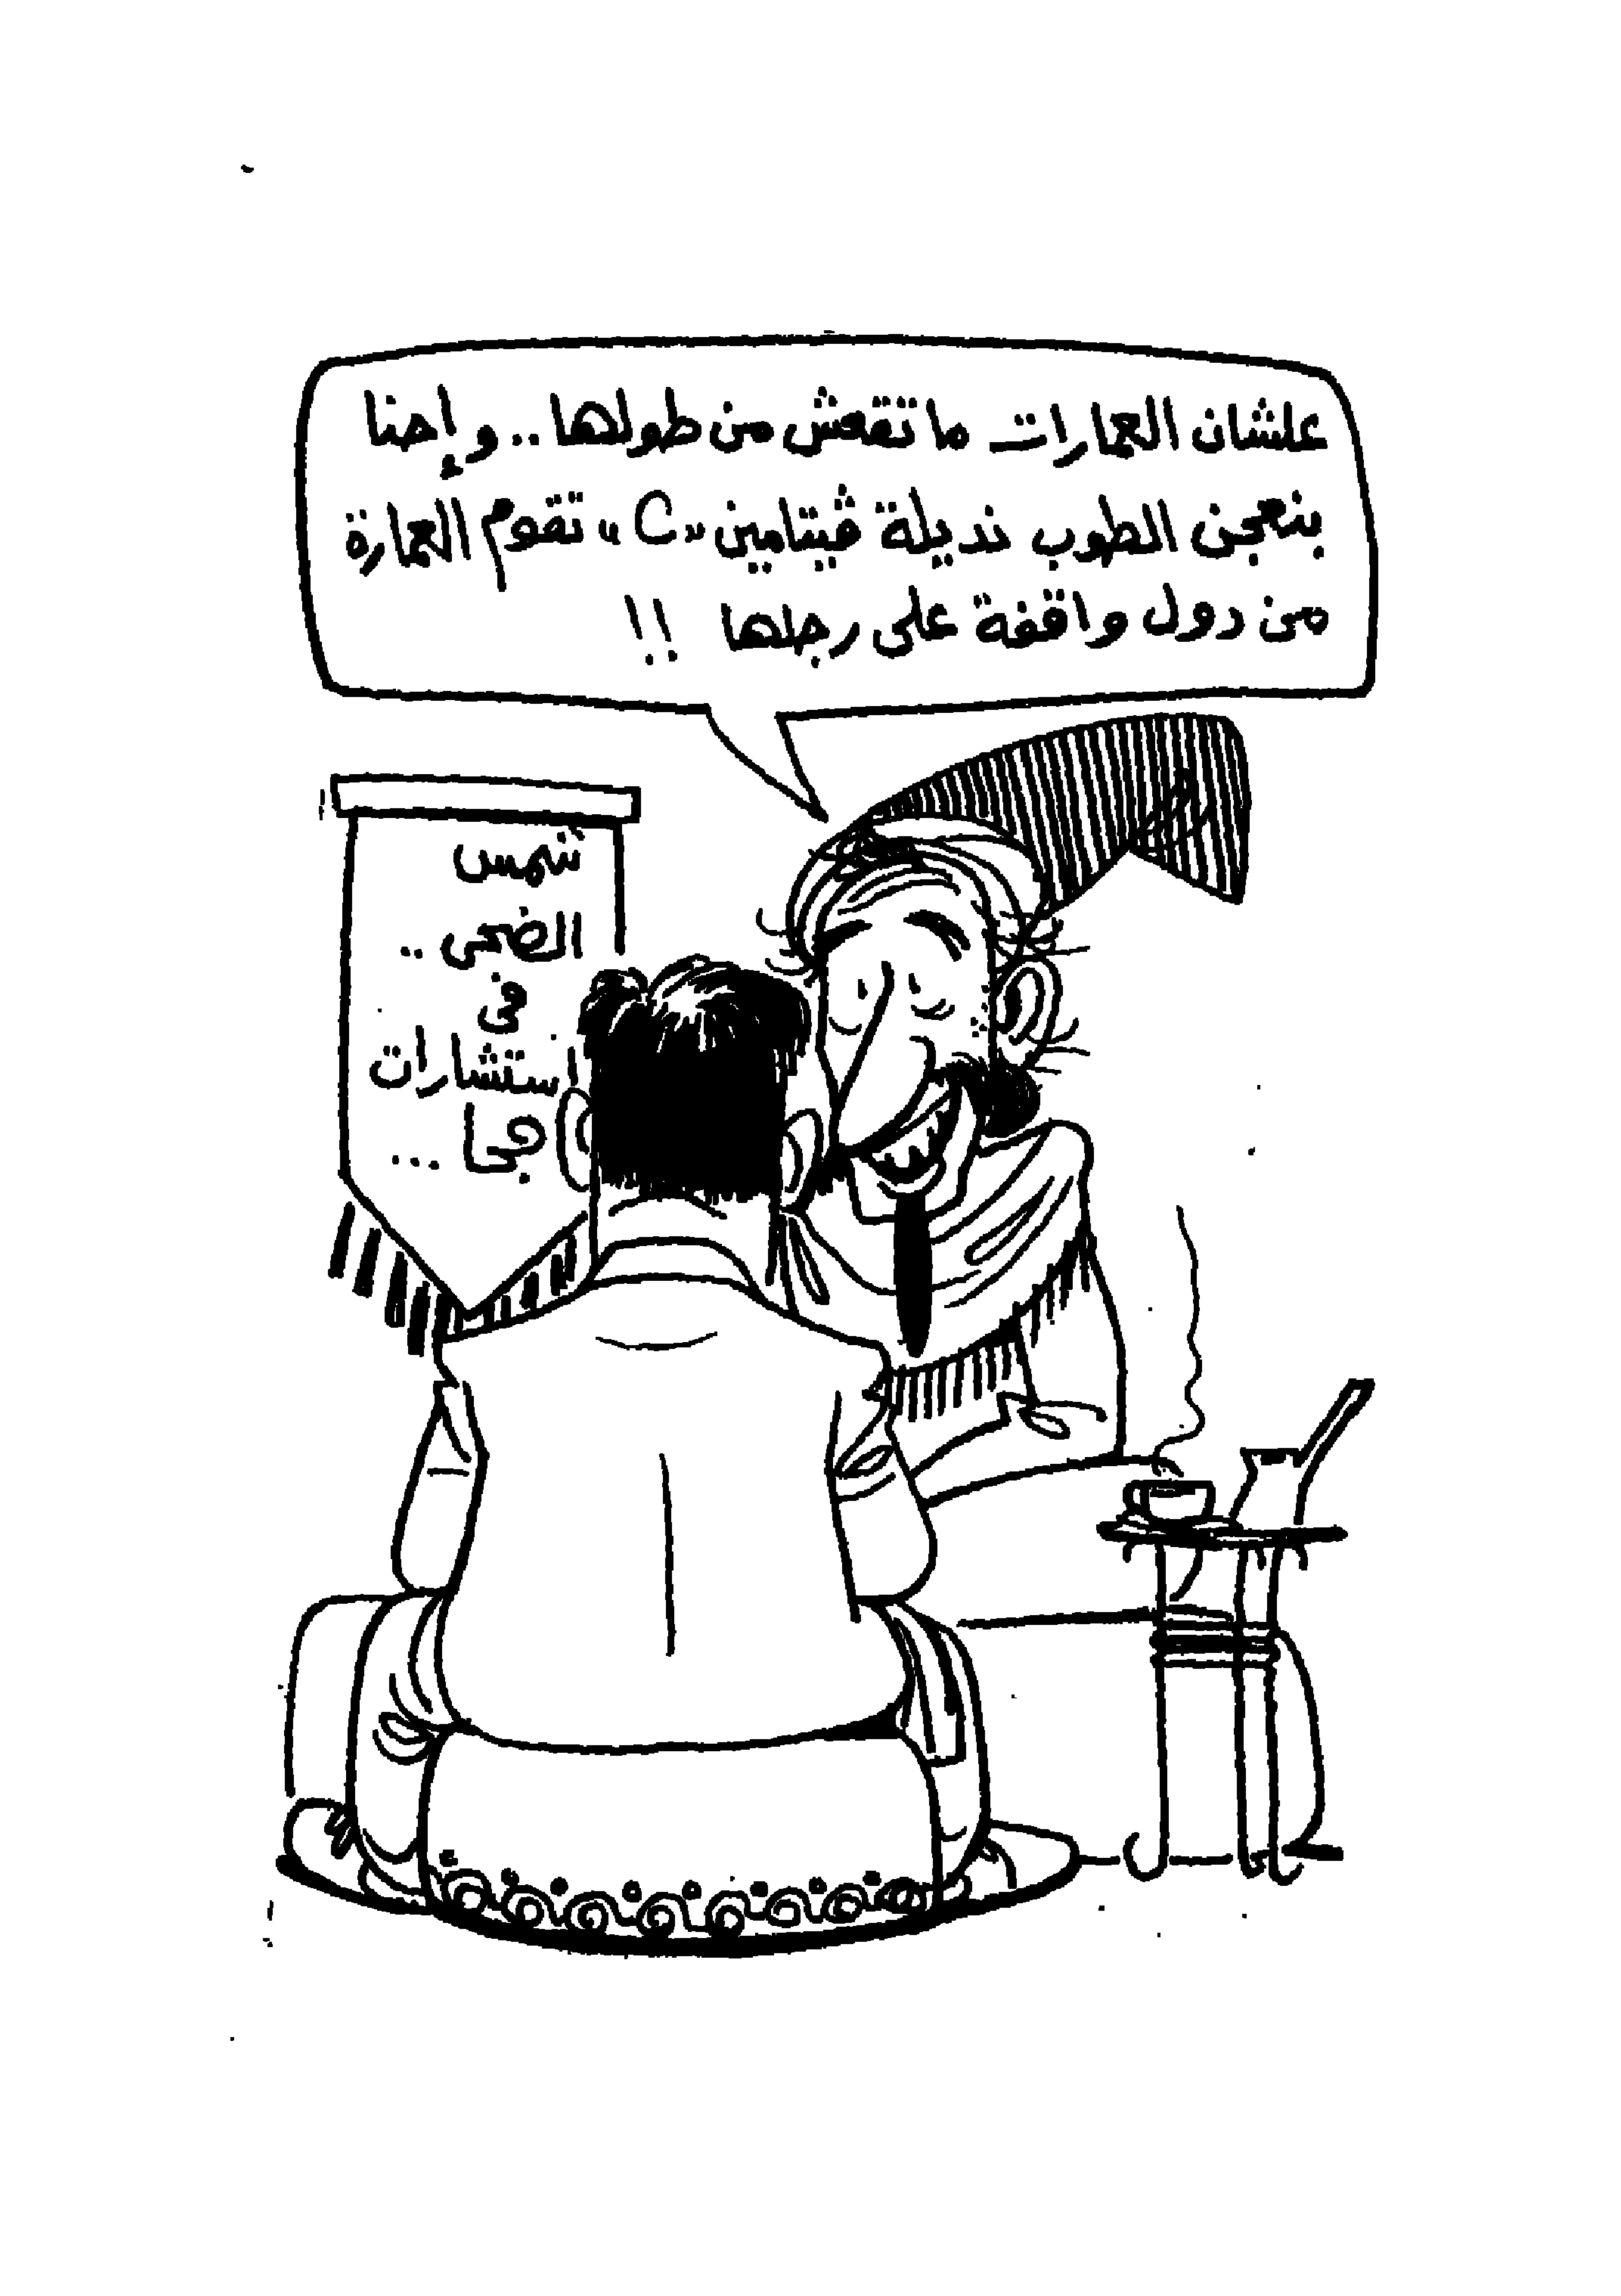 علشان العمارات ما تقعش من طولها.. وإحنا
بنعجن الطوب نديلة ڤيتامين «C» تقوم العمارة
من دول واقفة على رجلها !!
شمس
الضحى ..
فى
استشارات
جحا ...